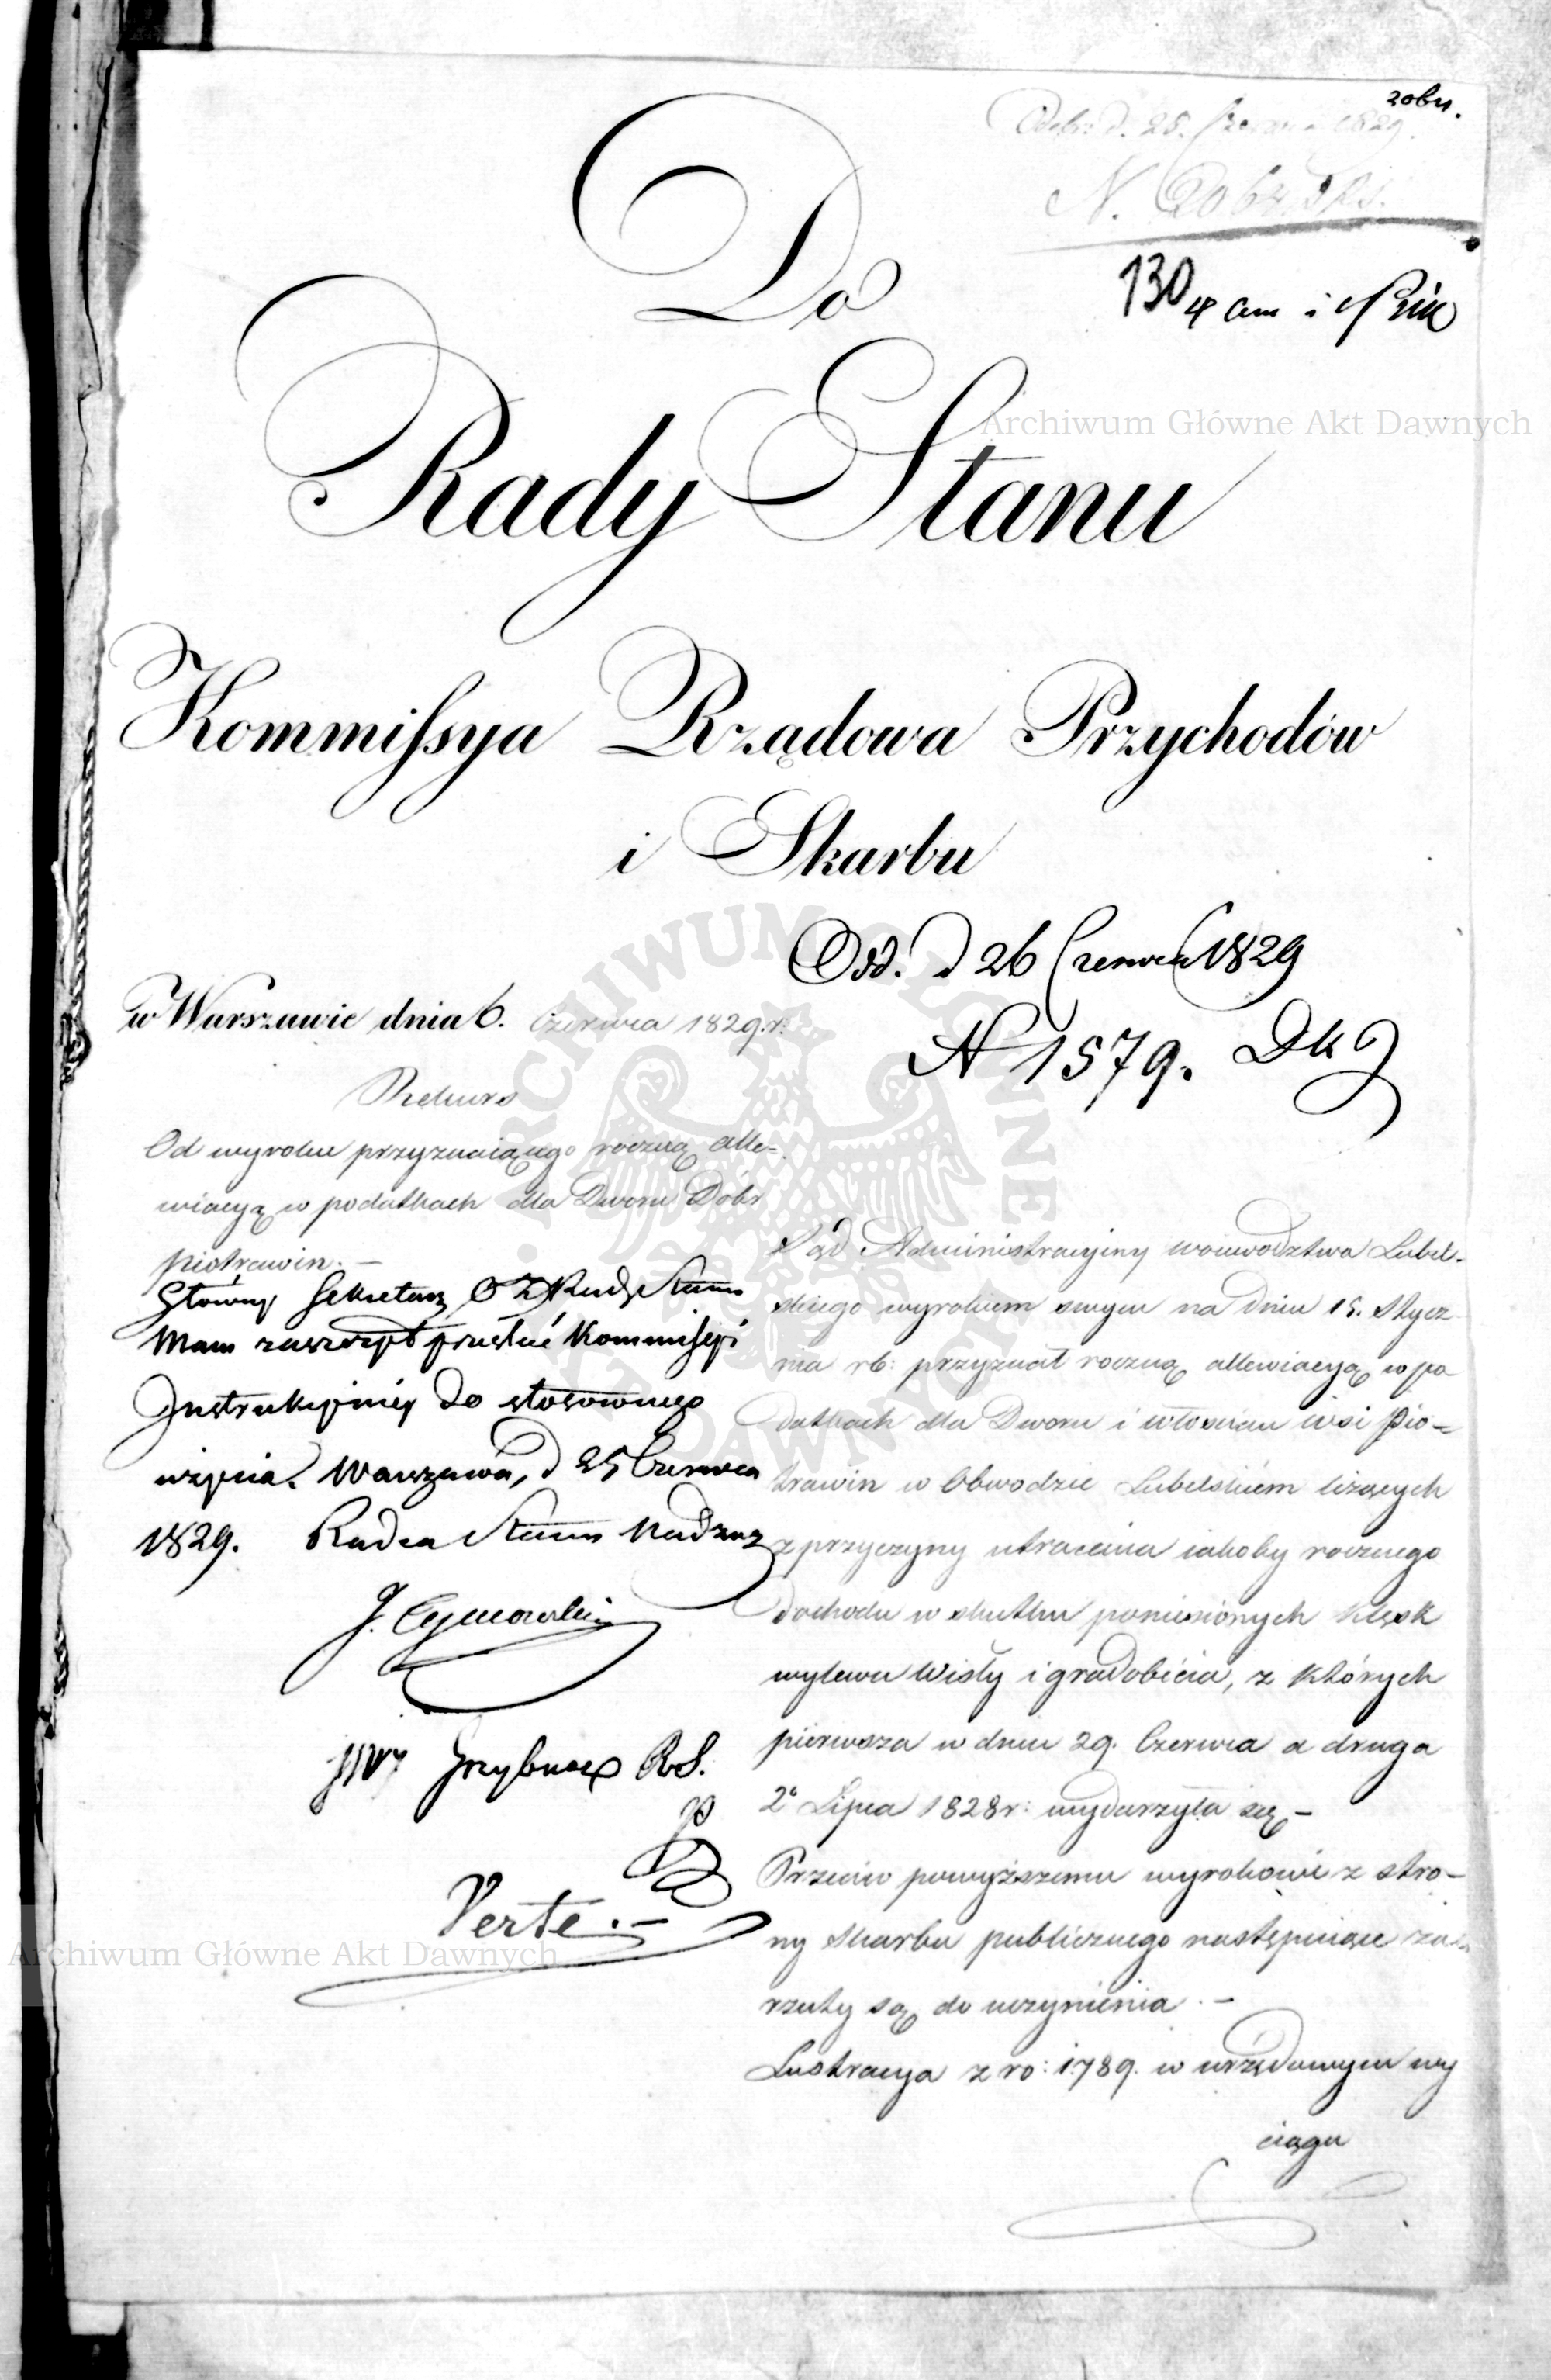 Odebr: d. 25. Czerwca 1829.
N. 2064
130
Do
Rady Stanu
Kommissya Rządowa Przychodów
i Skarbu
Odd. d 26 Czerwca 1829
N 1579.
w Warszawie dnia 6. Czerwca 1829. r:
Rekurs
Od wyroku przyznaiącego roczną alle=
wiacyą w podatkach dla Dworu Dóbr
Piotrawin. —
Główny Sekretarz Rady Stanu
Mam zaszczyt przesłać Kommissyi
Instrukcyjney do stosownego
użycia. Warszawa, d 25 Czerwca
1829. Radca Stanu Nadzwy
RS.
Verte. —
Sąd Administracyiny woiewodztwa Lubel-
skiego wyrokiem swym na dniu 15. Stycz
nia rb: przyznał roczną allewiacyą w po
datkach dla Dworu i włościan wsi Pio=
trawin w Obwodzie Lubelskiém leżących
z przyczyny utracenia iakoby rocznego
dochodu w skutku poniesionych klęsk
wylewu Wisły i gradobicia, z których
pierwsza w dniu 29. Czerwca a druga
2º Lipca 1828 r: wydarzyła się. —
Przeciw powyższemu wyrokowi z stro-
ny skarbu publicznego następuiące za=
rzuty są do uczynienia. —
Lustracya z ro: 1789. w urzędowym wy
ciągu
Archiwum Główne Akt Dawnych
Archiwum Główne Akt Dawnych
ARCHIWUM GŁÓWNE AKT DAWNYCH